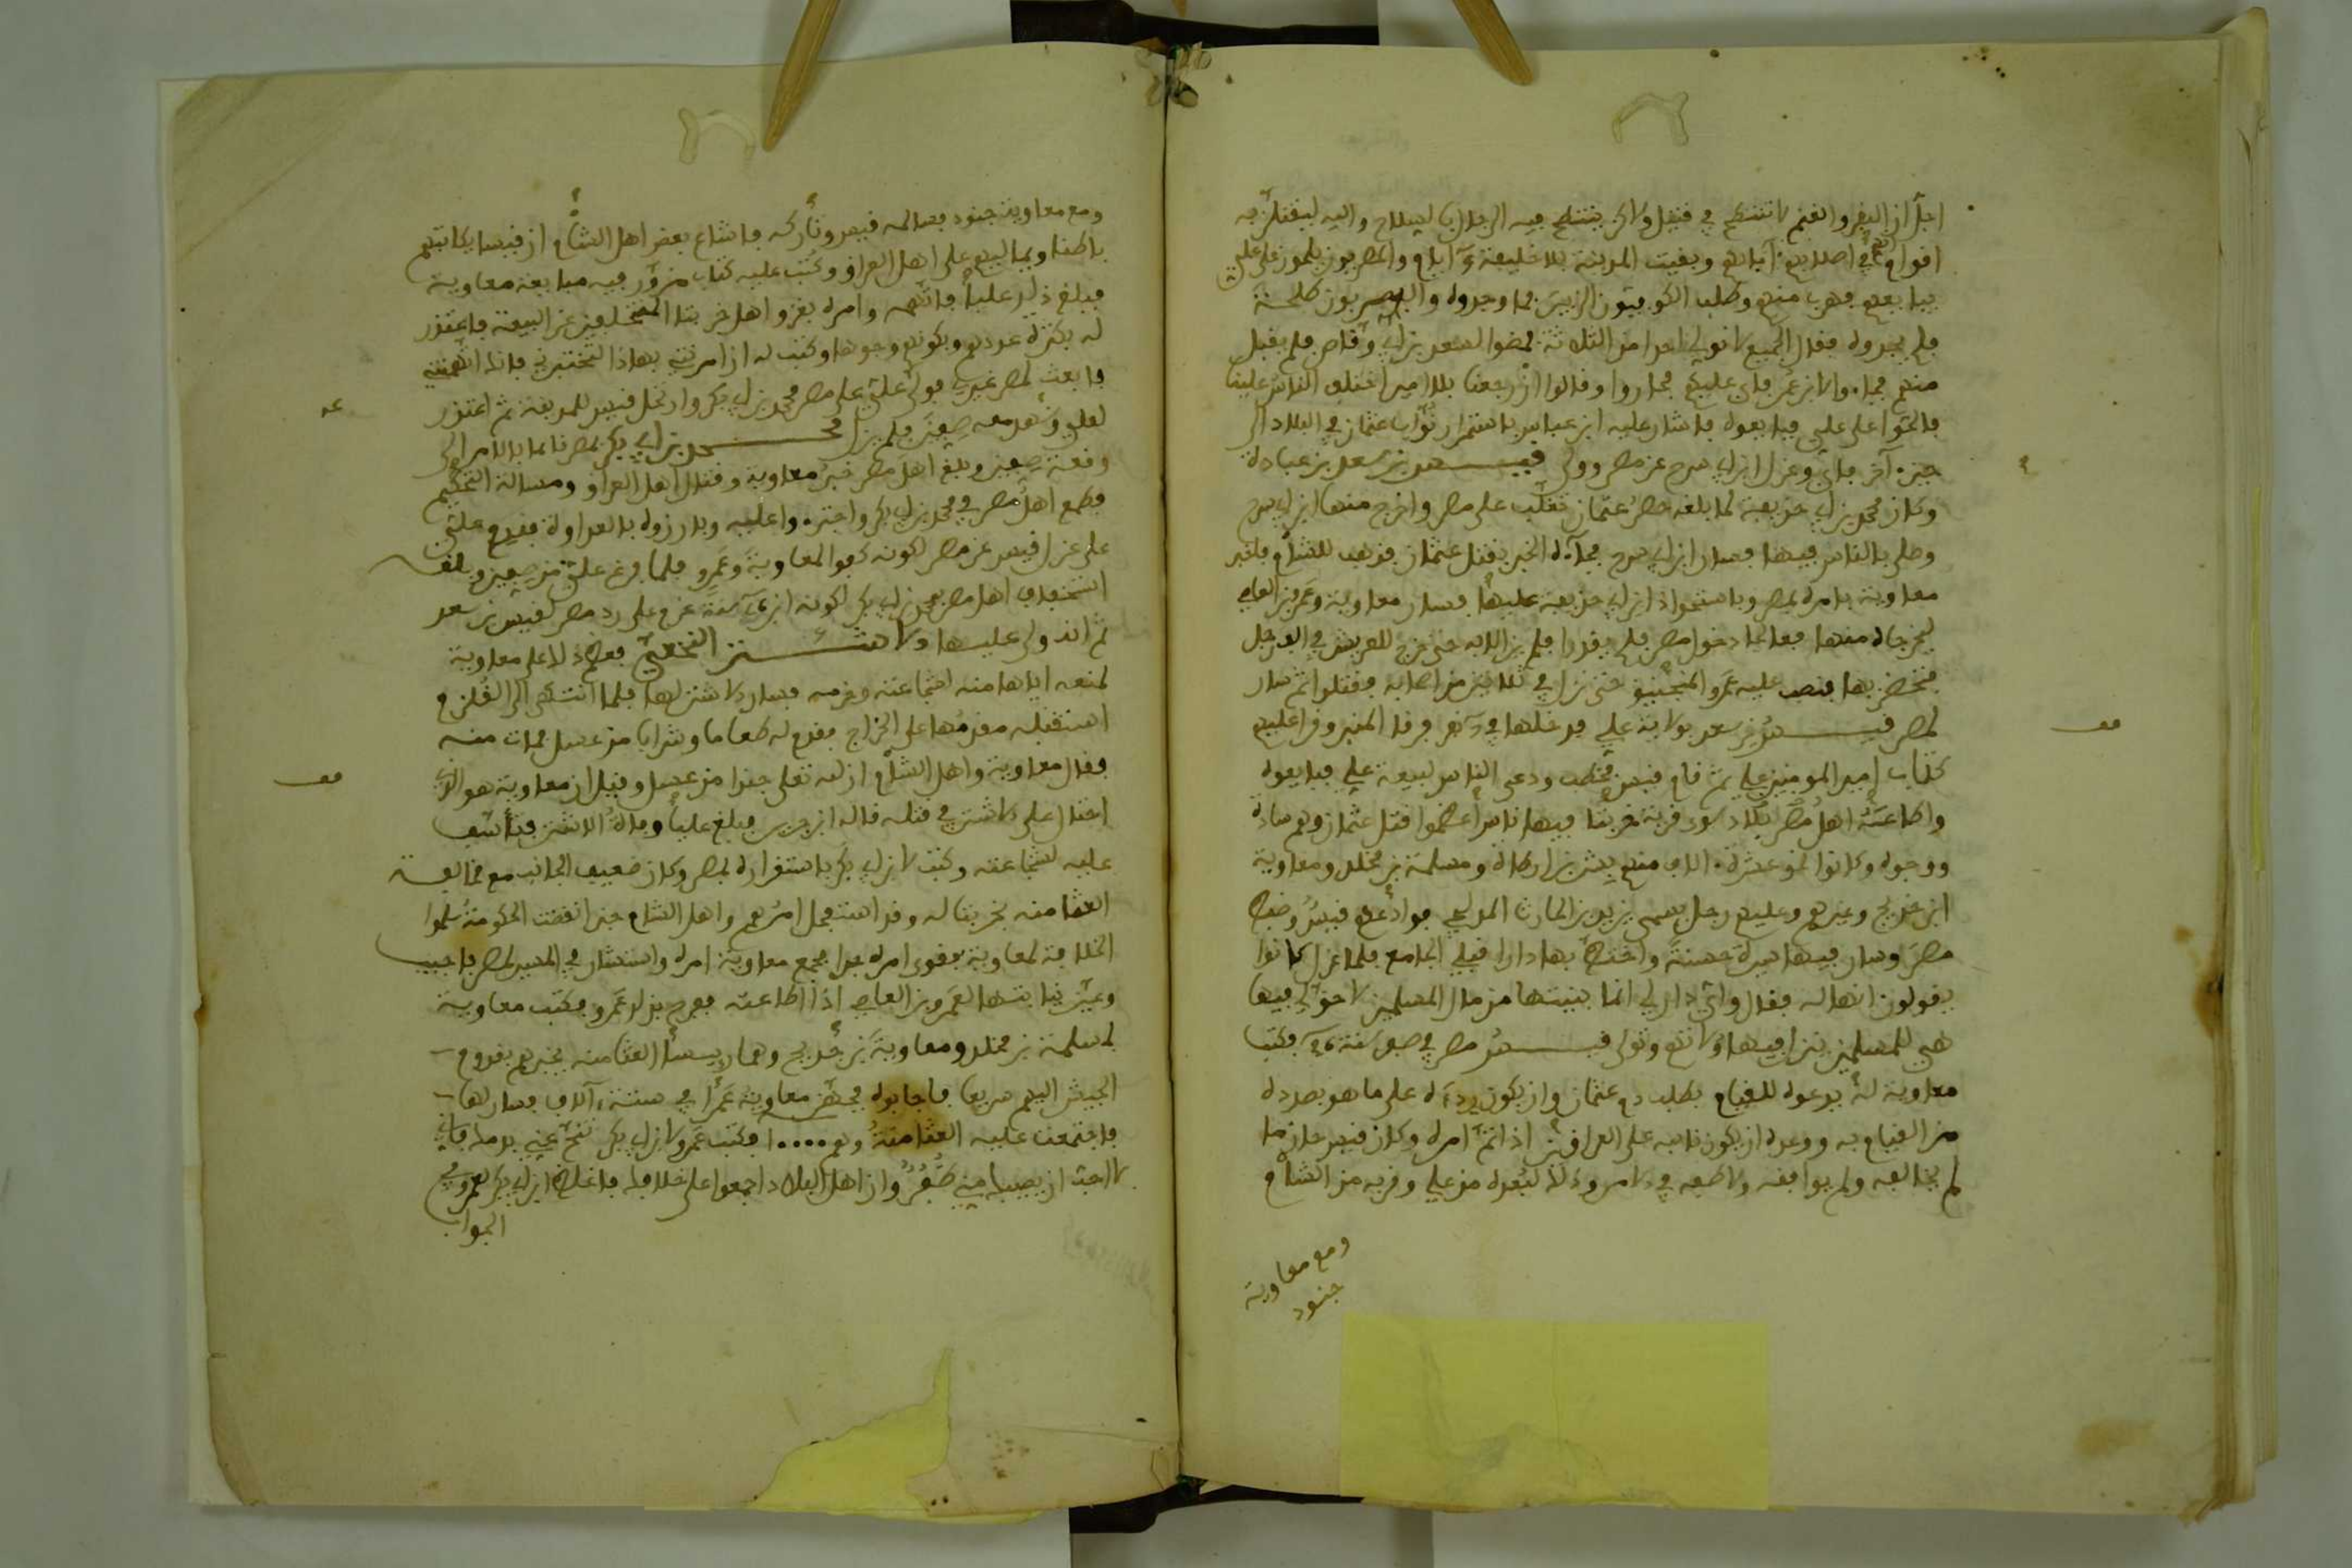 اجل ان البقر والغنم لا تنتطح في قتيل ولاكن ينتطح فيه الرجال بالسلاح والله ليقتلن به
اقوام في اصلاب ابايهم وبقيت المدينة بلا خليفة ايام والمصريون يلحون على علي
يبايعهم فهرب منهم وطلب الكوفيون الزبير فما وجدوه والبصريون طلحة
فلم يجدوه فقال الجميع لا نولي احدا من الثلاثة فمضوا لسعد بن ابي وقاص فلم يقبل
منهم فجاءوا لابن عمر فابى عليهم فحاروا وقالوا ان رجعنا بلا امير اختلف الناس علينا
فالحوا على علي فبايعوه فاشار عليه ابن عباس باستمرار نواب عثمان في البلاد الى
حين ءاخر فابى وعزل ابن ابي سرح عن مصر وولى قيس بن سعد بن عبادة
وكان محمد بن ابي حذيفة لما بلغه حصر عثمان تغلب على مصر واخرج منها ابن ابي سرح
وصلى بالناس فيها فسار ابن ابي سرح فجاءه الخبر بقتل عثمان فذهب للشام فاخبر
معاوية بامره بمصر وباستحواذ ابن ابي حذيفة عليها فسار معاوية وعمرو بن العاص
ليخرجاه منها فعالجا دخول مصر فلم يقدرا فلم يزالا به حتى خرج للعريش في الف رجل
فتحصن بها فنصب عليه عمرو المنجنيق حتى نزل في ثلاثين من اصحابه فقتلوا ثم سار
لمصر قيس بن سعد بولاية علي فدخلها فرقا المنبر وقرا عليهم
كتاب امير المومنين علي ثم قام قيس فخطب ودعى الناس لبيعة علي فبايعوه
واطاعته اهل مصر بلاد سوى قرية خربتا فيها ناس اعظموا قتل عثمان وهم سادة
ووجوه وكانوا نحو عشرة ءالاف منهم بشر بن ارطاة ومسلمة بن مخلد ومعاوية
ابن خديج وغيرهم وعليهم رجل يسمى يزيد بن الحارث المدلجي فوادعهم قيس وضبط
مصر وسار فيها سيرة حسنة واختط بها دارا قبلي الجامع فلما عزل كانوا
يقولون انها له فقال واي دار لي انما بنيتها من مال المسلمين لا حق لي فيها
هي للمسلمين ينزل فيها ولاتهم وتولى قيس مصر في صفر سنة فكتب
معاوية له يدعوه للقيام بطلب دم عثمان وان يكون ردءا له على ما هو بصدده
من القيام به ووعده ان يكون نايبه على العراقين اذا تم امره وكان قيس حازما
لم يخالفه ولم يوافقه ولاطفه في الامر وذلك لبعده من علي وقربه من الشام
ومع معاوية
جنود
ومع معاوية جنود فسالمه قيس وتاركه فاشاع بعض اهل الشام ان قيسا يكاتبهم
باطنا ويماليهم على اهل العراق وكتب عليه كتاب مزور فيه مبايعة معاوية
فبلغ ذلك عليا فاتهمه وامره بغزو اهل خربتا المتخلفين عن البيعة فاعتذر
له بكثرة عددهم وبكونهم وجوها وكتب له ان امرتني بهاذا لتختبرني فانك اتهمتني
فابعث لمصر غيري فولى علي على مصر محمد بن ابي بكر وارتحل قيس للمدينة ثم اعتذر
لعلي وشهد معه صفين فلم يزل محمد بن ابي بكر بمصر قائما بالامر الى
وقعة صفين وبلغ اهل مصر خبر معاوية وقتال اهل العراق ومسالة التحكيم
فطمع اهل مصر في محمد بن ابي بكر واجترءوا عليه وبارزوه بالعداوة فندم علي
على عزل قيس عن مصر لكونه كفوا لمعاوية وعمرو فلما فرغ علي من صفين وبلغه
استخفاف اهل مصر بمحمد بن ابي بكر لكونه ابن سنة عزم على رد مصر لقيس بن سعد
ثم انه ولى عليها الاشتر النخعي فعظم ذلك على معاوية
لمنعه اياها منه لشجاعته وحزمه فسار الاشتر لها فلما انتهى الى القلزم
استقبله مقدمها على الخراج فقدم له طعاما وشرابا من عسل فمات منه
فقال معاوية واهل الشام ان لله تعالى جندا من عسل وقيل ان معاوية هو الذي
احتال على الاشتر في قتله قاله ابن جرير فبلغ عليا وفاة الاشتر فتاسف
عليه لشجاعته وكتب لابن ابي بكر باستقراره بمصر وكان ضعيف الجانب مع مخالفة
العثمانية بخربتا له وقد استفحل امرهم واهل الشام حين انقضت الحكومة سلموا
الخلافة لمعاوية فقوى امره جدا فجمع معاوية امراه واستشار في المسير لمصر فاجيب
وعين نيابتها لعمرو بن العاص اذا اطاعته ففرح بذلك عمرو فكتب معاوية
لمسلمة بن مخلد ومعاوية بن خديج وهما رييسا العثمانية يخبرهم بقدوم
الجيش اليهم سريعا فاجابوه فجهز معاوية عمرا في ستة ءالاف فسار لها
فاجتمعت عليه العثمانية وهم ١٠٠٠٠ فكتب عمرو لابن ابي بكر تنح عني بدمك فاني
لا احب ان يصيبك مني ظفر وان اهل البلاد اجمعوا على خلافك فاغلظ ابن ابي بكر لعمرو في
الجواب